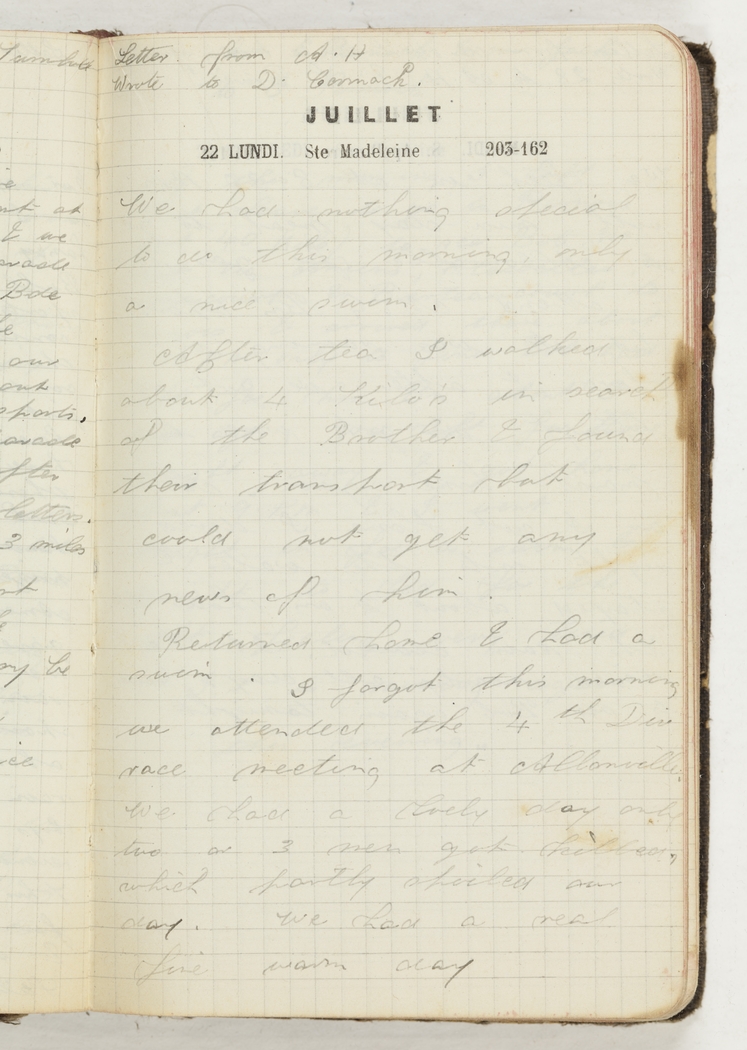 Letter from A. H
Wrote to D. Cormack.
JUILLET
22 LUNDI. Ste Madeleine 203-162
We had nothing special
to do this morning, only
a nice swim.
After tea I walked
about 4 Kilo's in search
of the Brother & found
their transport but
could not get any
news of him.
Returned home & had a
swim. I forgot this morning
we attended the 4th Div
race meeting at Allonville.
We had a lovely day only
two or 3 men got killed,
which partly spoiled our
day. We had a real
fine warm day
nt at
& we
parade
Bde
our
out
sports.
parade
after
letters.
3 miles
my be